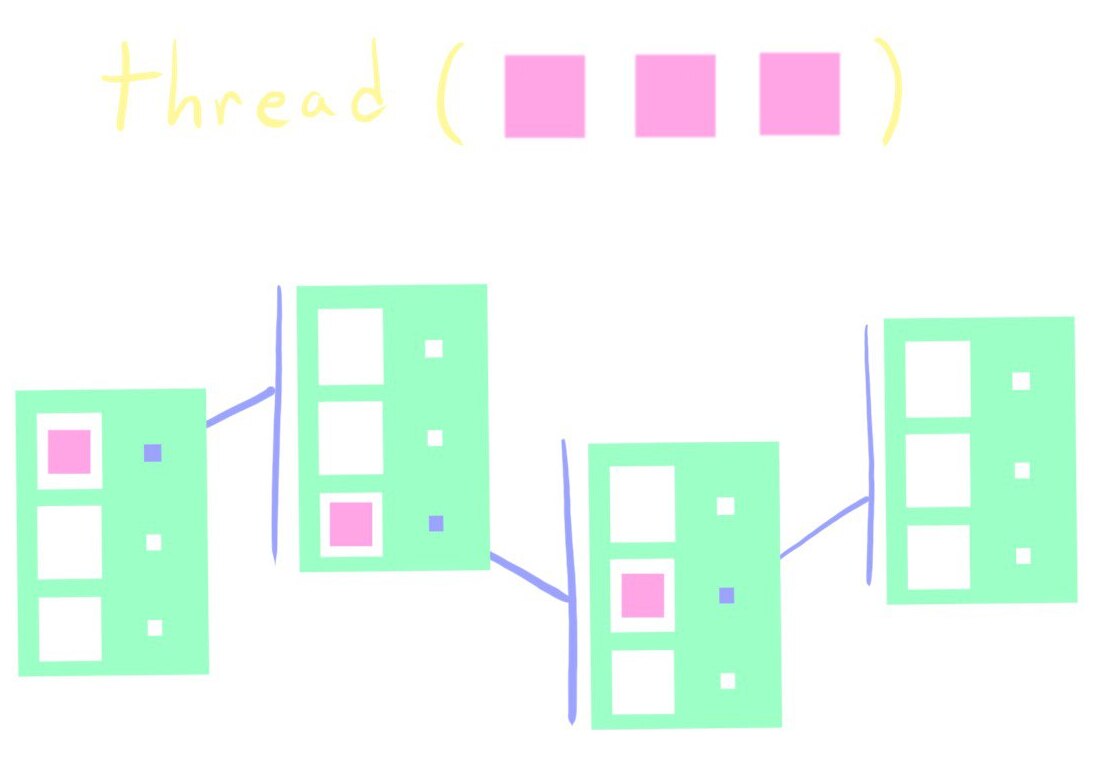 thread ( )